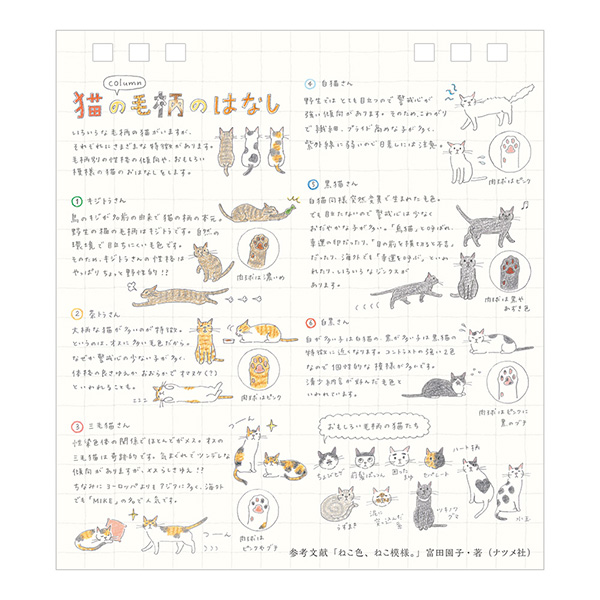 column
猫の毛柄のはなし
いろいろな毛柄の猫がいますが、
それぞれにさまざまな特徴があります。
毛柄別の性格の傾向や、おもしろい
模様の猫のおはなしをします。
1 キジトラさん
鳥のキジが名前の由来で猫の柄の本元。
野生の猫の毛柄はキジトラです。自然の
環境で目立ちにくい毛色です。
そのため、キジトラさんの性格は
やっぱりちょっと野性的!!
肉球は濃いめ
2 茶トラさん
大柄な猫が多いのが特徴。
というのは、オスに多い毛色だから。
なぜか警戒心の少ない子が多く、
体格の良さゆえ おおらかでオマヌケ(?)
といわれることも。
肉球はピンク
3 三毛猫さん
性染色体の関係でほとんどがメス。オスの
三毛猫は奇跡的です。気まぐれでツンデレな
傾向がありますが、メスらしさゆえ!!
ちなみにヨーロッパよりもアジアに多く、海外
でも「MIKE」の名で人気です。
つーん
つーん
肉球は
ピンクやブチ
4 白猫さん
野生ではとても目立つので警戒心が
強い傾向があります。そのため、これがり
で繊細、プライド高めな子が多く、
紫外線に弱いので日差しには注意。
肉球はピンク
5 黒猫さん
白猫同様突然変異で生まれた毛色。
でも目立たないので警戒心は少なく
おだやかな子が多い。「烏猫」と呼ばれ、
幸運の印だったり、「目の前を横切ると不吉」
だったり、海外でも「幸運を呼ぶ」といわ
れたり、いろいろなジンクスが
あります。
肉球は黒や
あずき色
6 白黒さん
白が多い子は白猫の、黒が多い子は黒猫の
特徴に近くなります。コントラストの強い2色
なので個性的な模様が多いです。
漫才納言が好んだ毛色と
いわれています。
肉球はピンクに
黒のブチ
おもしろい毛柄の猫たち
ちょびヒゲ
前髪ぱっつん
困った
まゆ
マスカレード
ハート柄
うずまき
ツキノワ
グマ
水玉
参考文献「ねこ色、ねこ模様。」富田園子・著(ナツメ社)